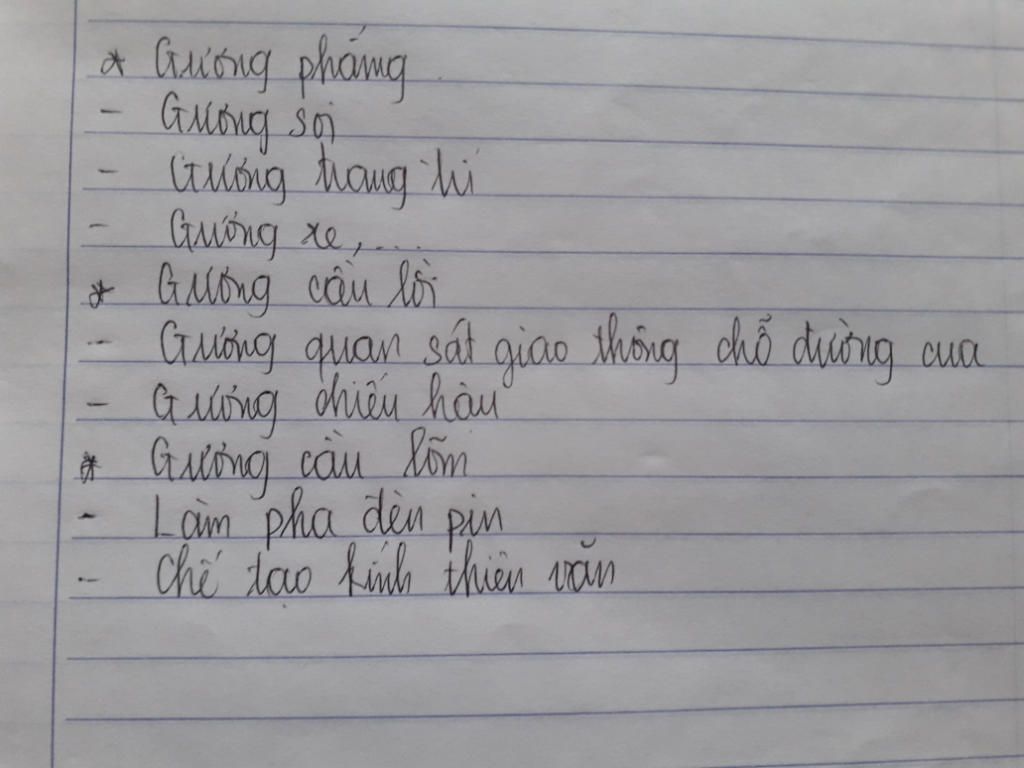 * Gương phẳng
- Gương soi
- Gương trang trí
- Gương xe,...
* Gương cầu lồi
- Gương quan sát giao thông chỗ đường cua
- Gương chiếu hậu
* Gương cầu lõm
- Làm pha đèn pin
- Chế tạo kính thiên văn